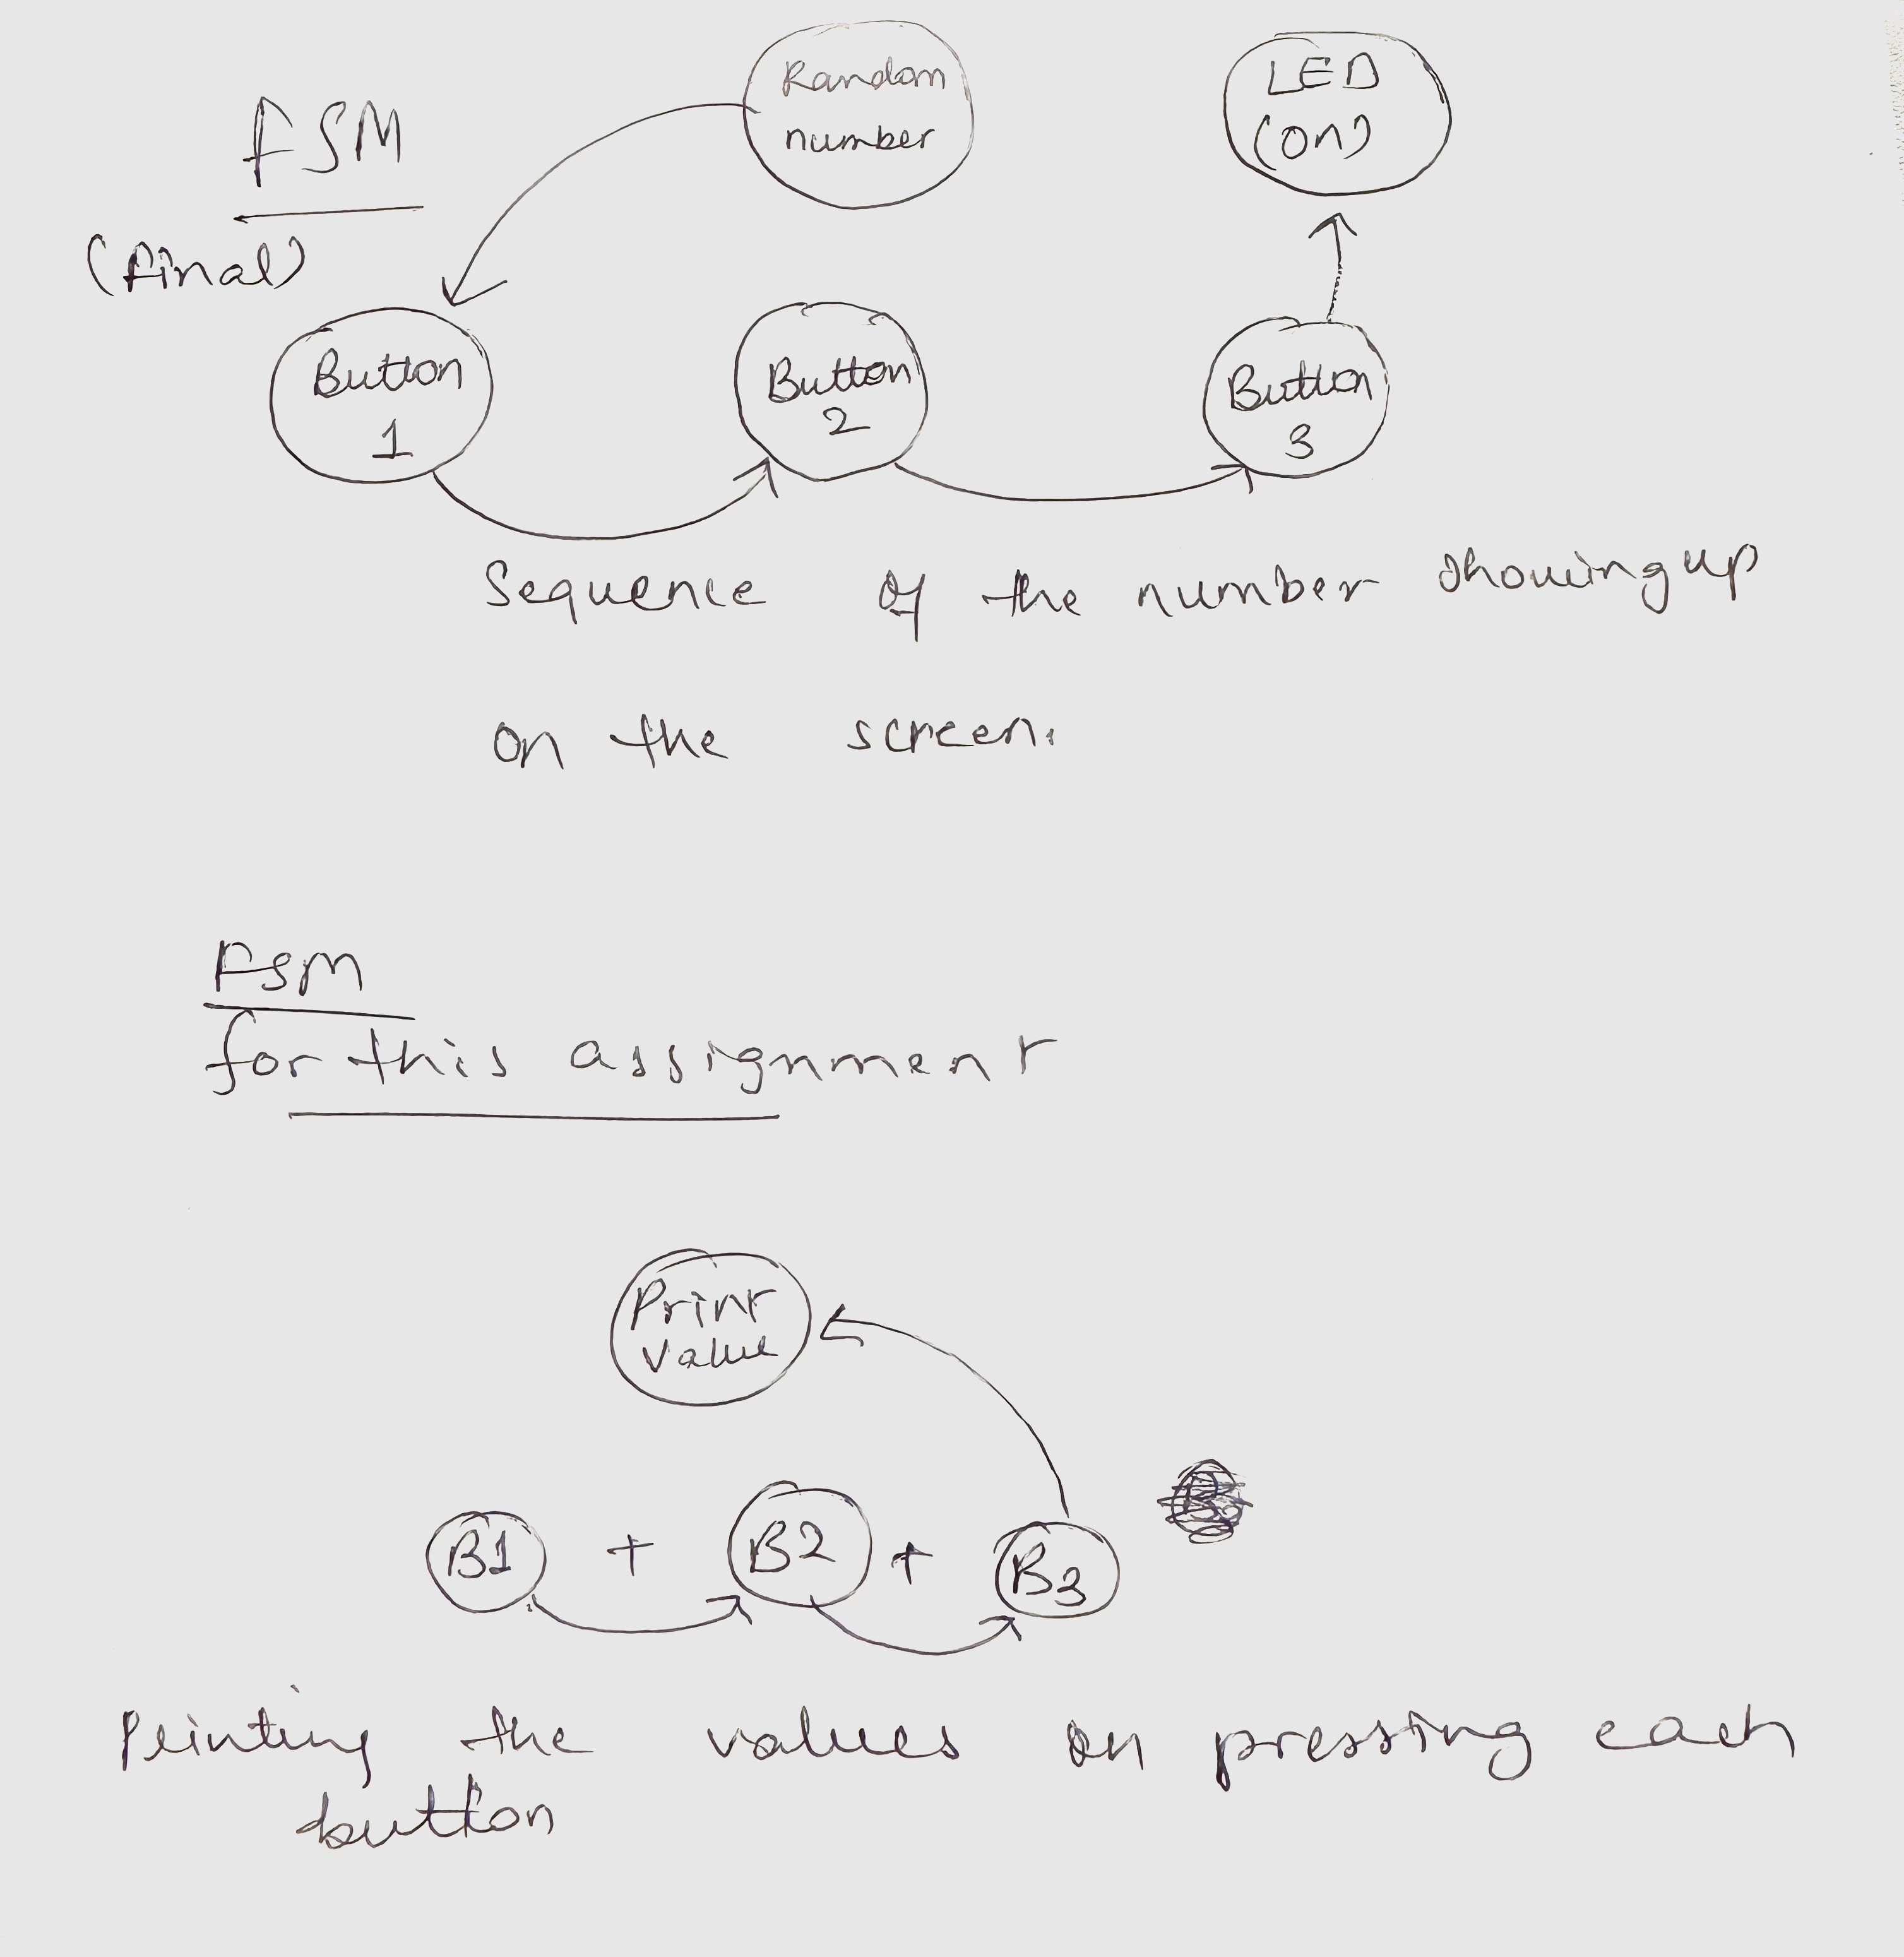 FSM
(final)
Random
number
LED
(ON)
Button
1
Button
2
Button
3
Sequence of the number showing up
on the screen.
FSM
for this assignment
Print
value
B1 + B2 + B3
printing the values on pressing each
button